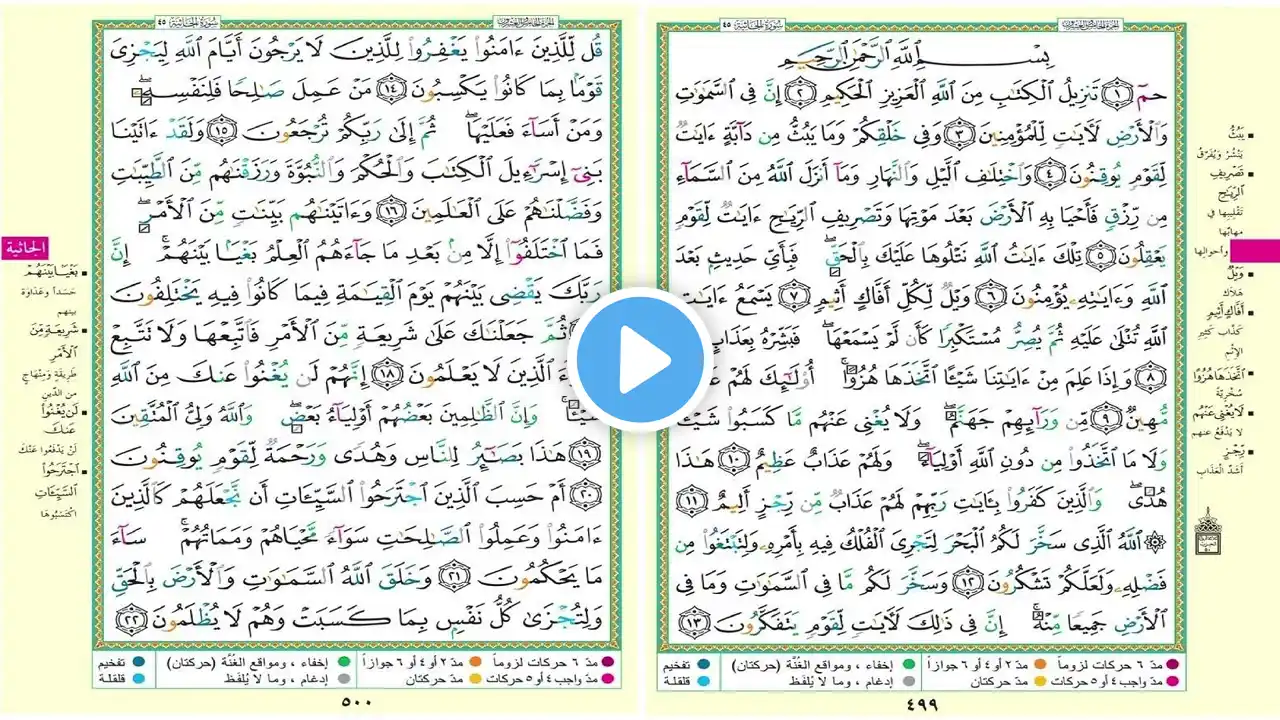 سُورَةُ الجَاثِيَة ٤٥
بِسْمِ ٱللَّهِ ٱلرَّحْمَٰنِ ٱلرَّحِيمِ
حمٓ ١ تَنزِيلُ ٱلْكِتَٰبِ مِنَ ٱللَّهِ ٱلْعَزِيزِ ٱلْحَكِيمِ ٢ إِنَّ فِى ٱلسَّمَٰوَٰتِ
وَٱلْأَرْضِ لَءَايَٰتٍ لِّلْمُؤْمِنِينَ ٣ وَفِى خَلْقِكُمْ وَمَا يَبُثُّ مِن دَآبَّةٍ ءَايَٰتٌ
لِّقَوْمٍ يُوقِنُونَ ٤ وَٱخْتِلَٰفِ ٱلَّيْلِ وَٱلنَّهَارِ وَمَآ أَنزَلَ ٱللَّهُ مِنَ ٱلسَّمَآءِ
مِن رِّزْقٍ فَأَحْيَا بِهِ ٱلْأَرْضَ بَعْدَ مَوْتِهَا وَتَصْرِيفِ ٱلرِّيَٰحِ ءَايَٰتٌ لِّقَوْمٍ
يَعْقِلُونَ ٥ تِلْكَ ءَايَٰتُ ٱللَّهِ نَتْلُوهَا عَلَيْكَ بِٱلْحَقِّ ۖ فَبِأَىِّ حَدِيثٍۭ بَعْدَ
ٱللَّهِ وَءَايَٰتِهِۦ يُؤْمِنُونَ ٦ وَيْلٌ لِّكُلِّ أَفَّاكٍ أَثِيمٍ ٧ يَسْمَعُ ءَايَٰتِ
ٱللَّهِ تُتْلَىٰ عَلَيْهِ ثُمَّ يُصِرُّ مُسْتَكْبِرًا كَأَن لَّمْ يَسْمَعْهَا ۖ فَبَشِّرْهُ بِعَذَابٍ
٨ وَإِذَا عَلِمَ مِنْ ءَايَٰتِنَا شَيْـًٔا ٱتَّخَذَهَا هُزُوًا ۚ أُو۟لَٰٓئِكَ لَهُمْ
مُّهِينٌ ٩ مِّن وَرَآئِهِمْ جَهَنَّمُ ۖ وَلَا يُغْنِى عَنْهُم مَّا كَسَبُوا۟ شَيْـًٔا
وَلَا مَا ٱتَّخَذُوا۟ مِن دُونِ ٱللَّهِ أَوْلِيَآءَ ۖ وَلَهُمْ عَذَابٌ عَظِيمٌ ١٠ هَٰذَا
هُدًى ۖ وَٱلَّذِينَ كَفَرُوا۟ بِـَٔايَٰتِ رَبِّهِمْ لَهُمْ عَذَابٌ مِّن رِّجْزٍ أَلِيمٌ ١١
۞ ٱللَّهُ ٱلَّذِى سَخَّرَ لَكُمُ ٱلْبَحْرَ لِتَجْرِىَ ٱلْفُلْكُ فِيهِ بِأَمْرِهِۦ وَلِتَبْتَغُوا۟ مِن
فَضْلِهِۦ وَلَعَلَّكُمْ تَشْكُرُونَ ١٢ وَسَخَّرَ لَكُم مَّا فِى ٱلسَّمَٰوَٰتِ وَمَا فِى
ٱلْأَرْضِ جَمِيعًا مِّنْهُ ۚ إِنَّ فِى ذَٰلِكَ لَءَايَٰتٍ لِّقَوْمٍ يَتَفَكَّرُونَ ١٣
يَبُثُّ
يَنْشُرُ وَيُفَرِّقُ
تَصْرِيفِ
ٱلرِّيَٰحِ
تَقْلِيبِهَا فِي
مَهَابِّهَا
وأحوالها
وَيْلٌ
هَلَاك
أَفَّاكٍ أَثِيمٍ
كَذَّاب كَثِير
الإثم
ٱتَّخَذَهَا هُزُوًا
سُخْرِيَّة
لَا يُغْنِي عَنْهُم
لا يَدْفَعُ عنهم
رِجْزٍ
أَشَدّ العَذَاب
مدّ ٦ حركات لزوماً مدّ ٢ أو ٤ أو ٦ جوازاً إخفاء ، ومواقع الغُنَّة (حركتان) تفخيم
مدّ واجب ٤ أو ٥ حركات مدّ حركتان إدغام ، وما لا يُلفَظ قلقلة
٤٩٩
سُورَةُ الجَاثِيَة ٤٥
قُل لِّلَّذِينَ ءَامَنُوا۟ يَغْفِرُوا۟ لِلَّذِينَ لَا يَرْجُونَ أَيَّامَ ٱللَّهِ لِيَجْزِىَ
قَوْمًۢا بِمَا كَانُوا۟ يَكْسِبُونَ ١٤ مَنْ عَمِلَ صَٰلِحًا فَلِنَفْسِهِۦ ۖ
وَمَنْ أَسَآءَ فَعَلَيْهَا ۖ ثُمَّ إِلَىٰ رَبِّكُمْ تُرْجَعُونَ ١٥ وَلَقَدْ ءَاتَيْنَا
بَنِىٓ إِسْرَٰٓءِيلَ ٱلْكِتَٰبَ وَٱلْحُكْمَ وَٱلنُّبُوَّةَ وَرَزَقْنَٰهُم مِّنَ ٱلطَّيِّبَٰتِ
وَفَضَّلْنَٰهُمْ عَلَى ٱلْعَٰلَمِينَ ١٦ وَءَاتَيْنَٰهُم بَيِّنَٰتٍ مِّنَ ٱلْأَمْرِ ۖ
فَمَا ٱخْتَلَفُوٓا۟ إِلَّا مِنۢ بَعْدِ مَا جَآءَهُمُ ٱلْعِلْمُ بَغْيًۢا بَيْنَهُمْ ۚ إِنَّ
رَبَّكَ يَقْضِى بَيْنَهُمْ يَوْمَ ٱلْقِيَٰمَةِ فِيمَا كَانُوا۟ فِيهِ يَخْتَلِفُونَ
ثُمَّ جَعَلْنَٰكَ عَلَىٰ شَرِيعَةٍ مِّنَ ٱلْأَمْرِ فَٱتَّبِعْهَا وَلَا تَتَّبِعْ
ٱلَّذِينَ لَا يَعْلَمُونَ ١٨ إِنَّهُمْ لَن يُغْنُوا۟ عَنكَ مِنَ ٱللَّهِ
شَيْـًٔا ۚ وَإِنَّ ٱلظَّٰلِمِينَ بَعْضُهُمْ أَوْلِيَآءُ بَعْضٍ ۖ وَٱللَّهُ وَلِىُّ ٱلْمُتَّقِينَ
١٩ هَٰذَا بَصَٰٓئِرُ لِلنَّاسِ وَهُدًى وَرَحْمَةٌ لِّقَوْمٍ يُوقِنُونَ
٢٠ أَمْ حَسِبَ ٱلَّذِينَ ٱجْتَرَحُوا۟ ٱلسَّيِّـَٔاتِ أَن نَّجْعَلَهُمْ كَٱلَّذِينَ
ءَامَنُوا۟ وَعَمِلُوا۟ ٱلصَّٰلِحَٰتِ سَوَآءً مَّحْيَاهُمْ وَمَمَاتُهُمْ ۚ سَآءَ
مَا يَحْكُمُونَ ٢١ وَخَلَقَ ٱللَّهُ ٱلسَّمَٰوَٰتِ وَٱلْأَرْضَ بِٱلْحَقِّ
وَلِتُجْزَىٰ كُلُّ نَفْسٍۭ بِمَا كَسَبَتْ وَهُمْ لَا يُظْلَمُونَ ٢٢
الجاثية
بَغْيًا بَيْنَهُمْ
حَسَداً وَعَدَاوَة
بينهم
شَرِيعَةٍ مِّنَ
ٱلْأَمْرِ
طَرِيقَةٍ وَمِنْهَاجٍ
من الدِّينِ
لَن يُغْنُوا۟
عَنكَ
لَنْ يَدْفَعُوا عَنْكَ
ٱجْتَرَحُوا۟
ٱلسَّيِّـَٔاتِ
اكْتَسَبُوهَا
مدّ ٦ حركات لزوماً مدّ ٢ أو ٤ أو ٦ جوازاً إخفاء ، ومواقع الغُنَّة (حركتان) تفخيم
مدّ واجب ٤ أو ٥ حركات مدّ حركتان إدغام ، وما لا يُلفَظ قلقلة
٥٠٠